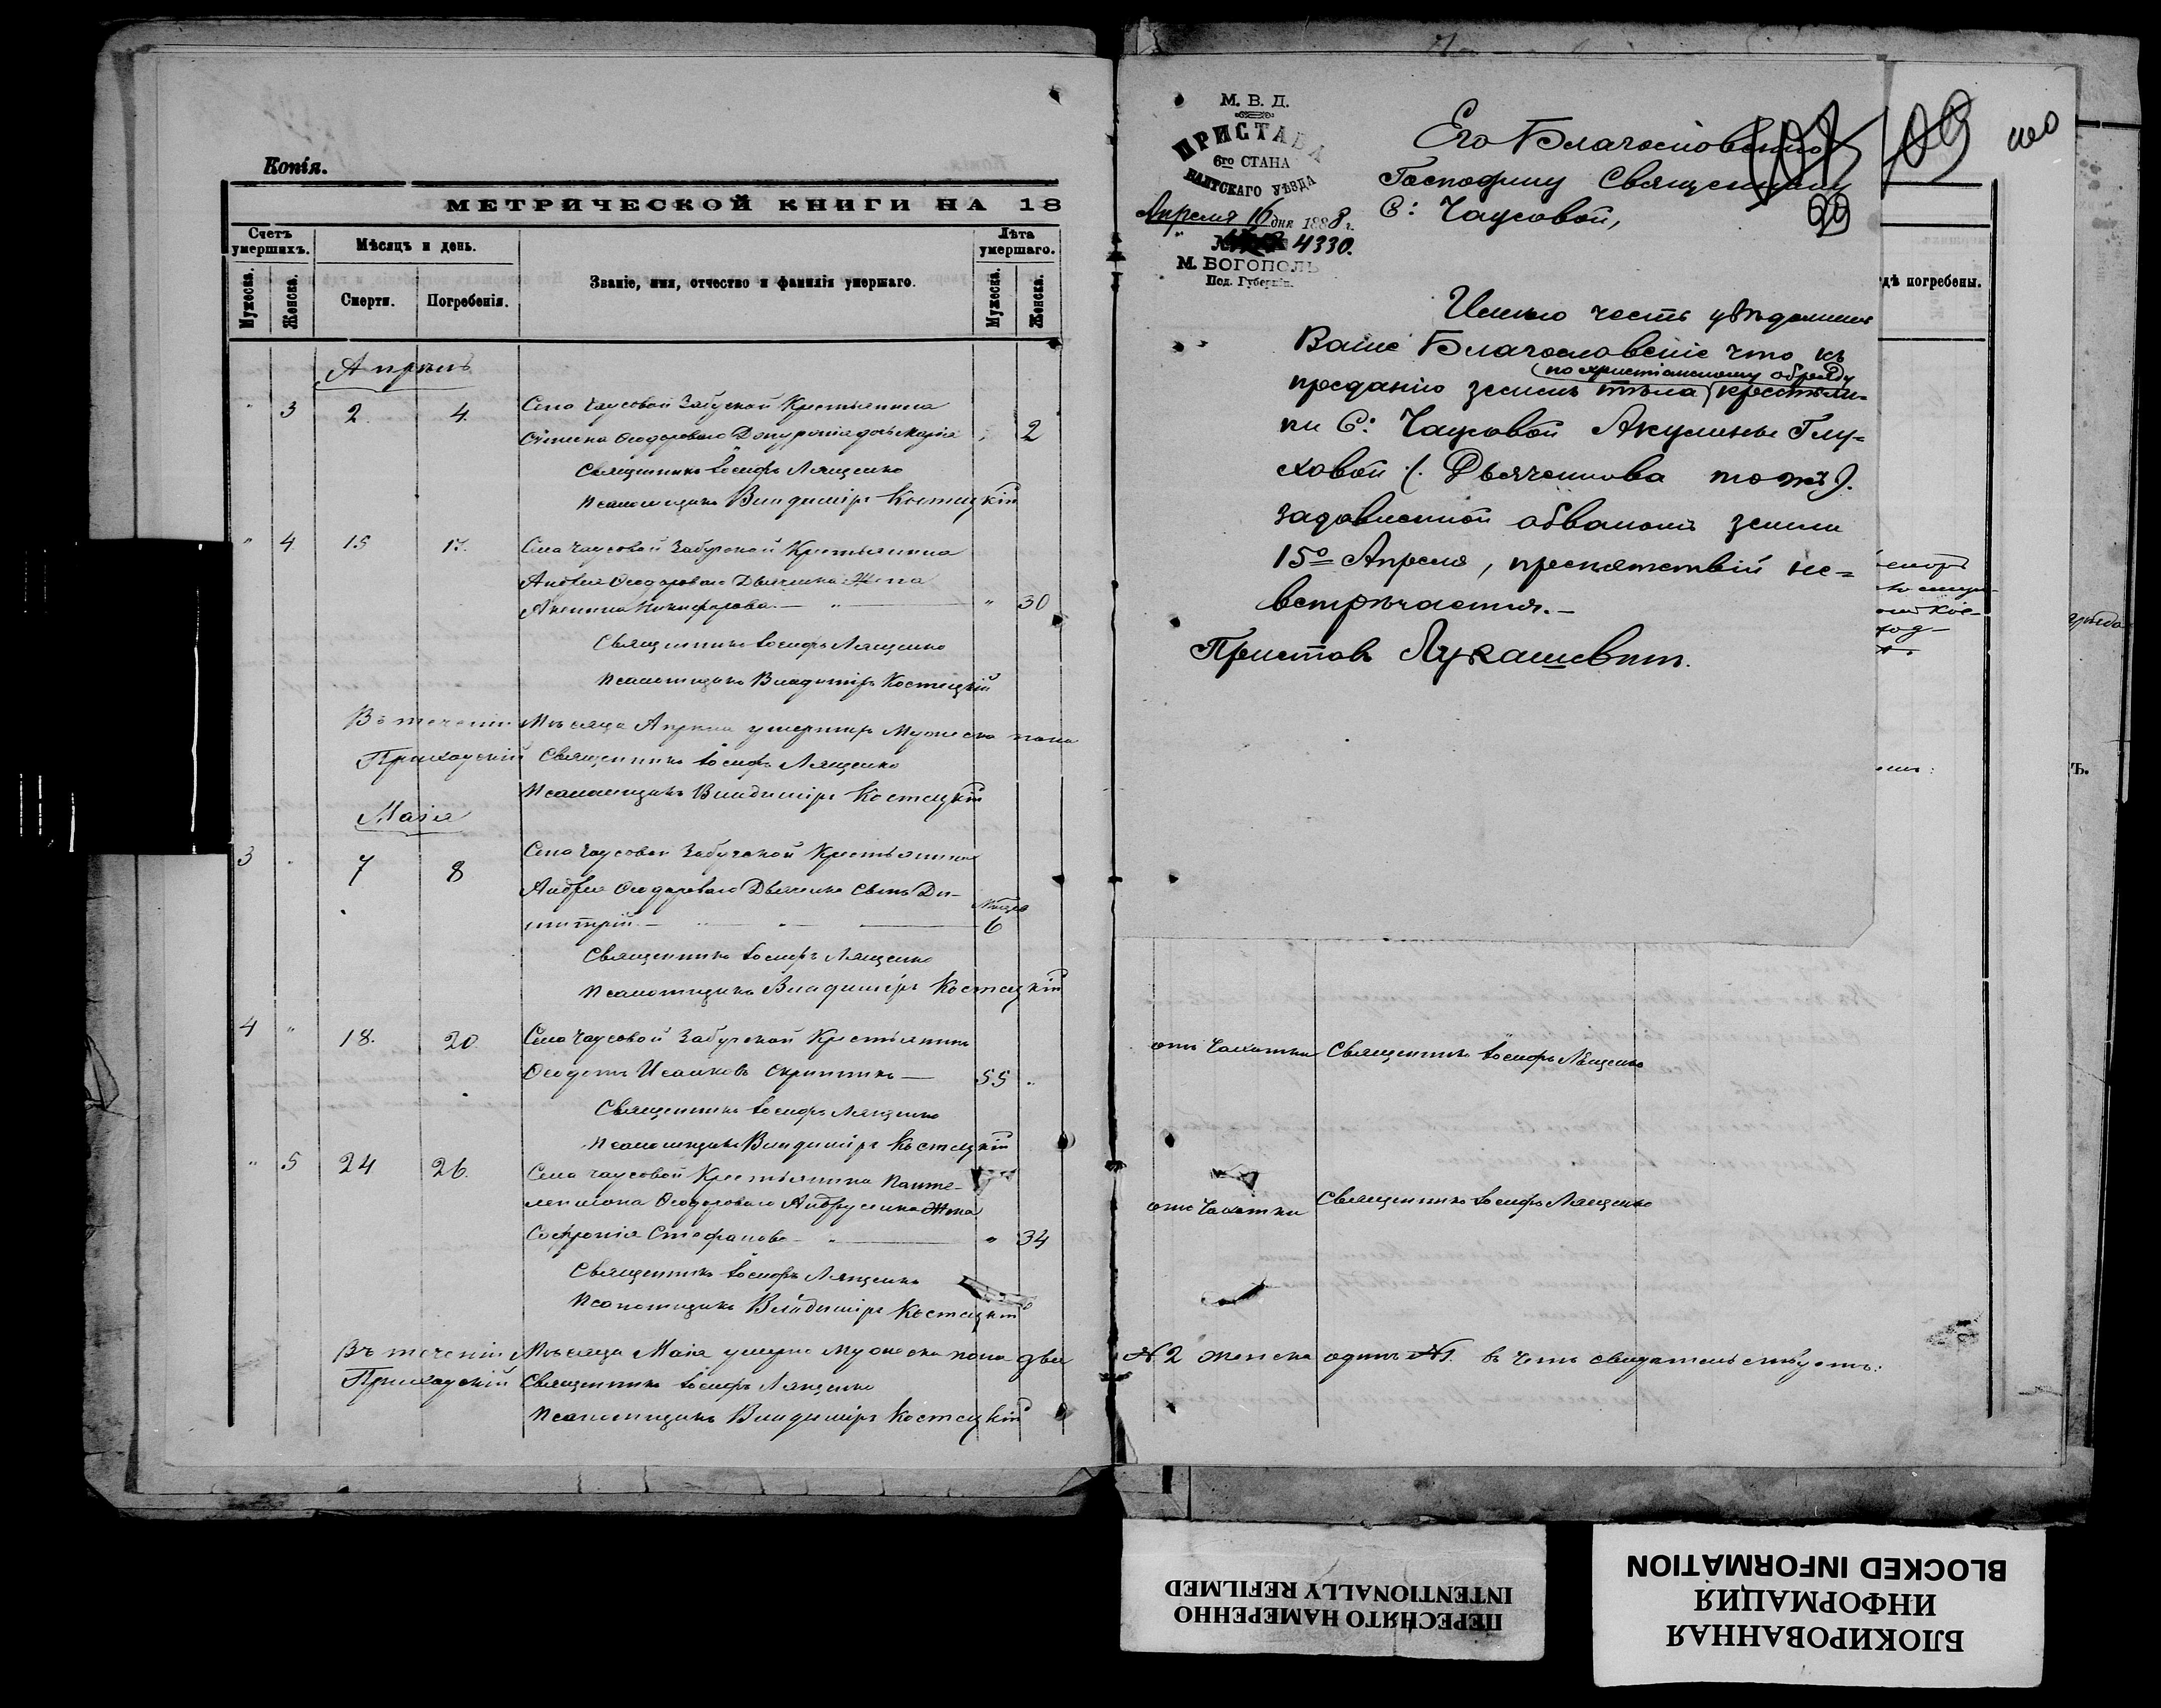 Копія.
МЕТРИЧЕСКОЙ КНИГИ НА 18
Счетъ умершихъ.
Мѣсяцъ и день.
Званіе, имя, отчество и фамилія умершаго.
Лѣта умершаго.
Мужеска.
Женска.
Смерти.
Погребенія.
Мужеска.
Женска.
Апрѣль
" 3 2. 4. Села Чаусовой Забугской Крестьянина
Ѳеодорова дочь Марія " 2
Священникъ Іосифъ Лященко
Псаломщикъ Владиміръ Костецкій
" 4 15 17. Села Чаусовой Забугской Крестьянина
Андрея Ѳеодорова Дьяченка Жена
Никифорова — " — " 30
Священникъ Іосифъ Лященко
Псаломщикъ Владиміръ Костецкій
Въ теченіи Мѣсяца Апрѣля умершихъ Мужеска пола
Приходскій Священникъ Іосифъ Лященко
Псаломщикъ Владиміръ Костецкій
Маія
3 " 7 8 Села Чаусовой Забугской Крестьянина
Андрея Ѳеодорова Дьяченка Сынъ Ди-
митрій — " — 6
Священникъ Іосифъ Лященко
Псаломщикъ Владиміръ Костецкій
4 " 18. 20. Села Чаусовой Забугской Крестьянинъ
Ѳеодотъ Исааковъ Скрипникъ — 55 "
Священникъ Іосифъ Лященко
Псаломщикъ Владиміръ Костецкій
" 5 24 26. Села Чаусовой Крестьянина Панте-
леимона Ѳеодорова Андрущенка Жена
Софронія Стефанова — " — " 34
Священникъ Іосифъ Лященко
Псаломщикъ Владиміръ Костецкій
Въ теченіи Мѣсяца Маія умерло Мужеска пола два
Приходскій Священникъ Іосифъ Лященко
Псаломщикъ Владиміръ Костецкій
М. В. Д.
ПРИСТАВА
6го СТАНА
БАЛТСКАГО УѢЗДА
Апреля 16 дня 1888 г.
№ 4330.
М. БОГОПОЛЬ
Под. Губерніи.
Его Благословенію
Господину Священнику
С: Чаусовой,
109
110
99
Имѣю честь увѣдомить
Ваше Благословеніе что къ
по христіанскому обряду
преданію землѣ тѣла крестьян-
ки С: Чаусовой Акулины Глу-
ховой (Дьяченкова тожъ).
задавленной обваломъ земли
15го Апреля, препятствій не=
встрѣчается.—
Приставъ Лукашевичъ.
дѣ погребены.
отъ Чахотки Священникъ Іосифъ Лященко
отъ Чахотки Священникъ Іосифъ Лященко
№ 2 женска одинъ № 1. въ чемъ свидѣтельствуютъ:
ПЕРЕСНЯТО НАМЕРЕННО
INTENTIONALLY REFILMED
БЛОКИРОВАННАЯ
ИНФОРМАЦИЯ
BLOCKED INFORMATION